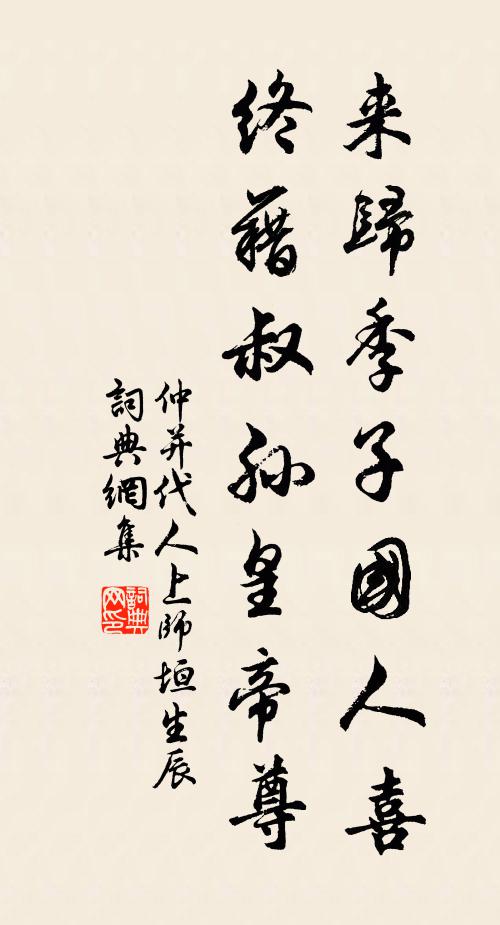 来歸季子國人喜
終藉叔孫皇帝尊
仲并代人上師垣生辰
詞典網集
詞典网印